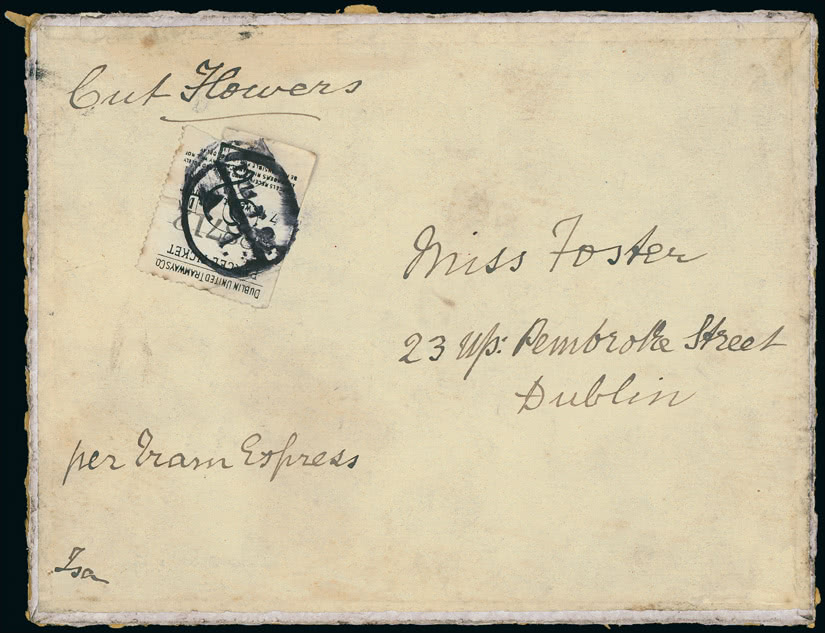 Cut Flowers
DUBLIN UNITED TRAMWAYS CO.
PARCEL TICKET
Miss Foster
23 Up: Pembroke Street
Dublin
per Tram Express
Isa